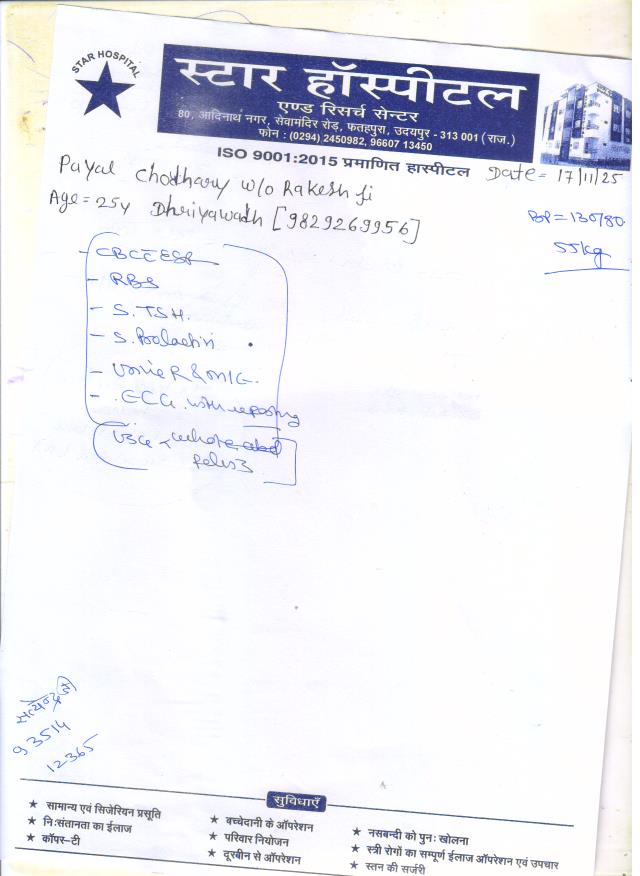 STAR HOSPITAL
स्टार हॉस्पीटल
एण्ड रिसर्च सेन्टर
80, आदिनाथ नगर, सेवामंदिर रोड़, फतहपुरा, उदयपुर - 313 001 (राज.)
फोन : (0294) 2450982, 96607 13450
ISO 9001:2015 प्रमाणित हास्पीटल
Date = 17/11/25
Payal Chodhary w/o Rakesh ji
Age = 25y Dhriyawadh [9829269956]
BP = 130/80
55kg
- CBC ESR
- RBS
- S. TSH.
- S. Prolactin
- Urine R & M/E.
- ECG with reporting
USG whole abd
pelvis
93514
12365
सुविधाएँ
★ सामान्य एवं सिजेरियन प्रसूति
★ निःसंतानता का ईलाज
★ कॉपर-टी
★ बच्चेदानी के ऑपरेशन
★ परिवार नियोजन
★ दूरबीन से ऑपरेशन
★ नसबन्दी को पुनः खोलना
★ स्त्री रोगों का सम्पूर्ण ईलाज ऑपरेशन एवं उपचार
★ स्तन की सर्जरी